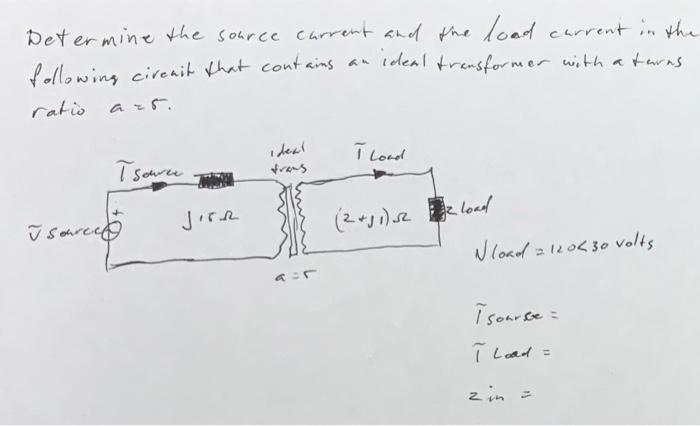 Determine the source current and the load current in the
following circuit that contains an ideal transformer with a turns
ratio a=5.
ideal
trans
Ĩ Load
Ĩ source
+
ṽ source
j15Ω
(2+j1)Ω
z load
a=5
Ṽload = 120<30 volts
Ĩ source =
Ĩ Load =
z in =